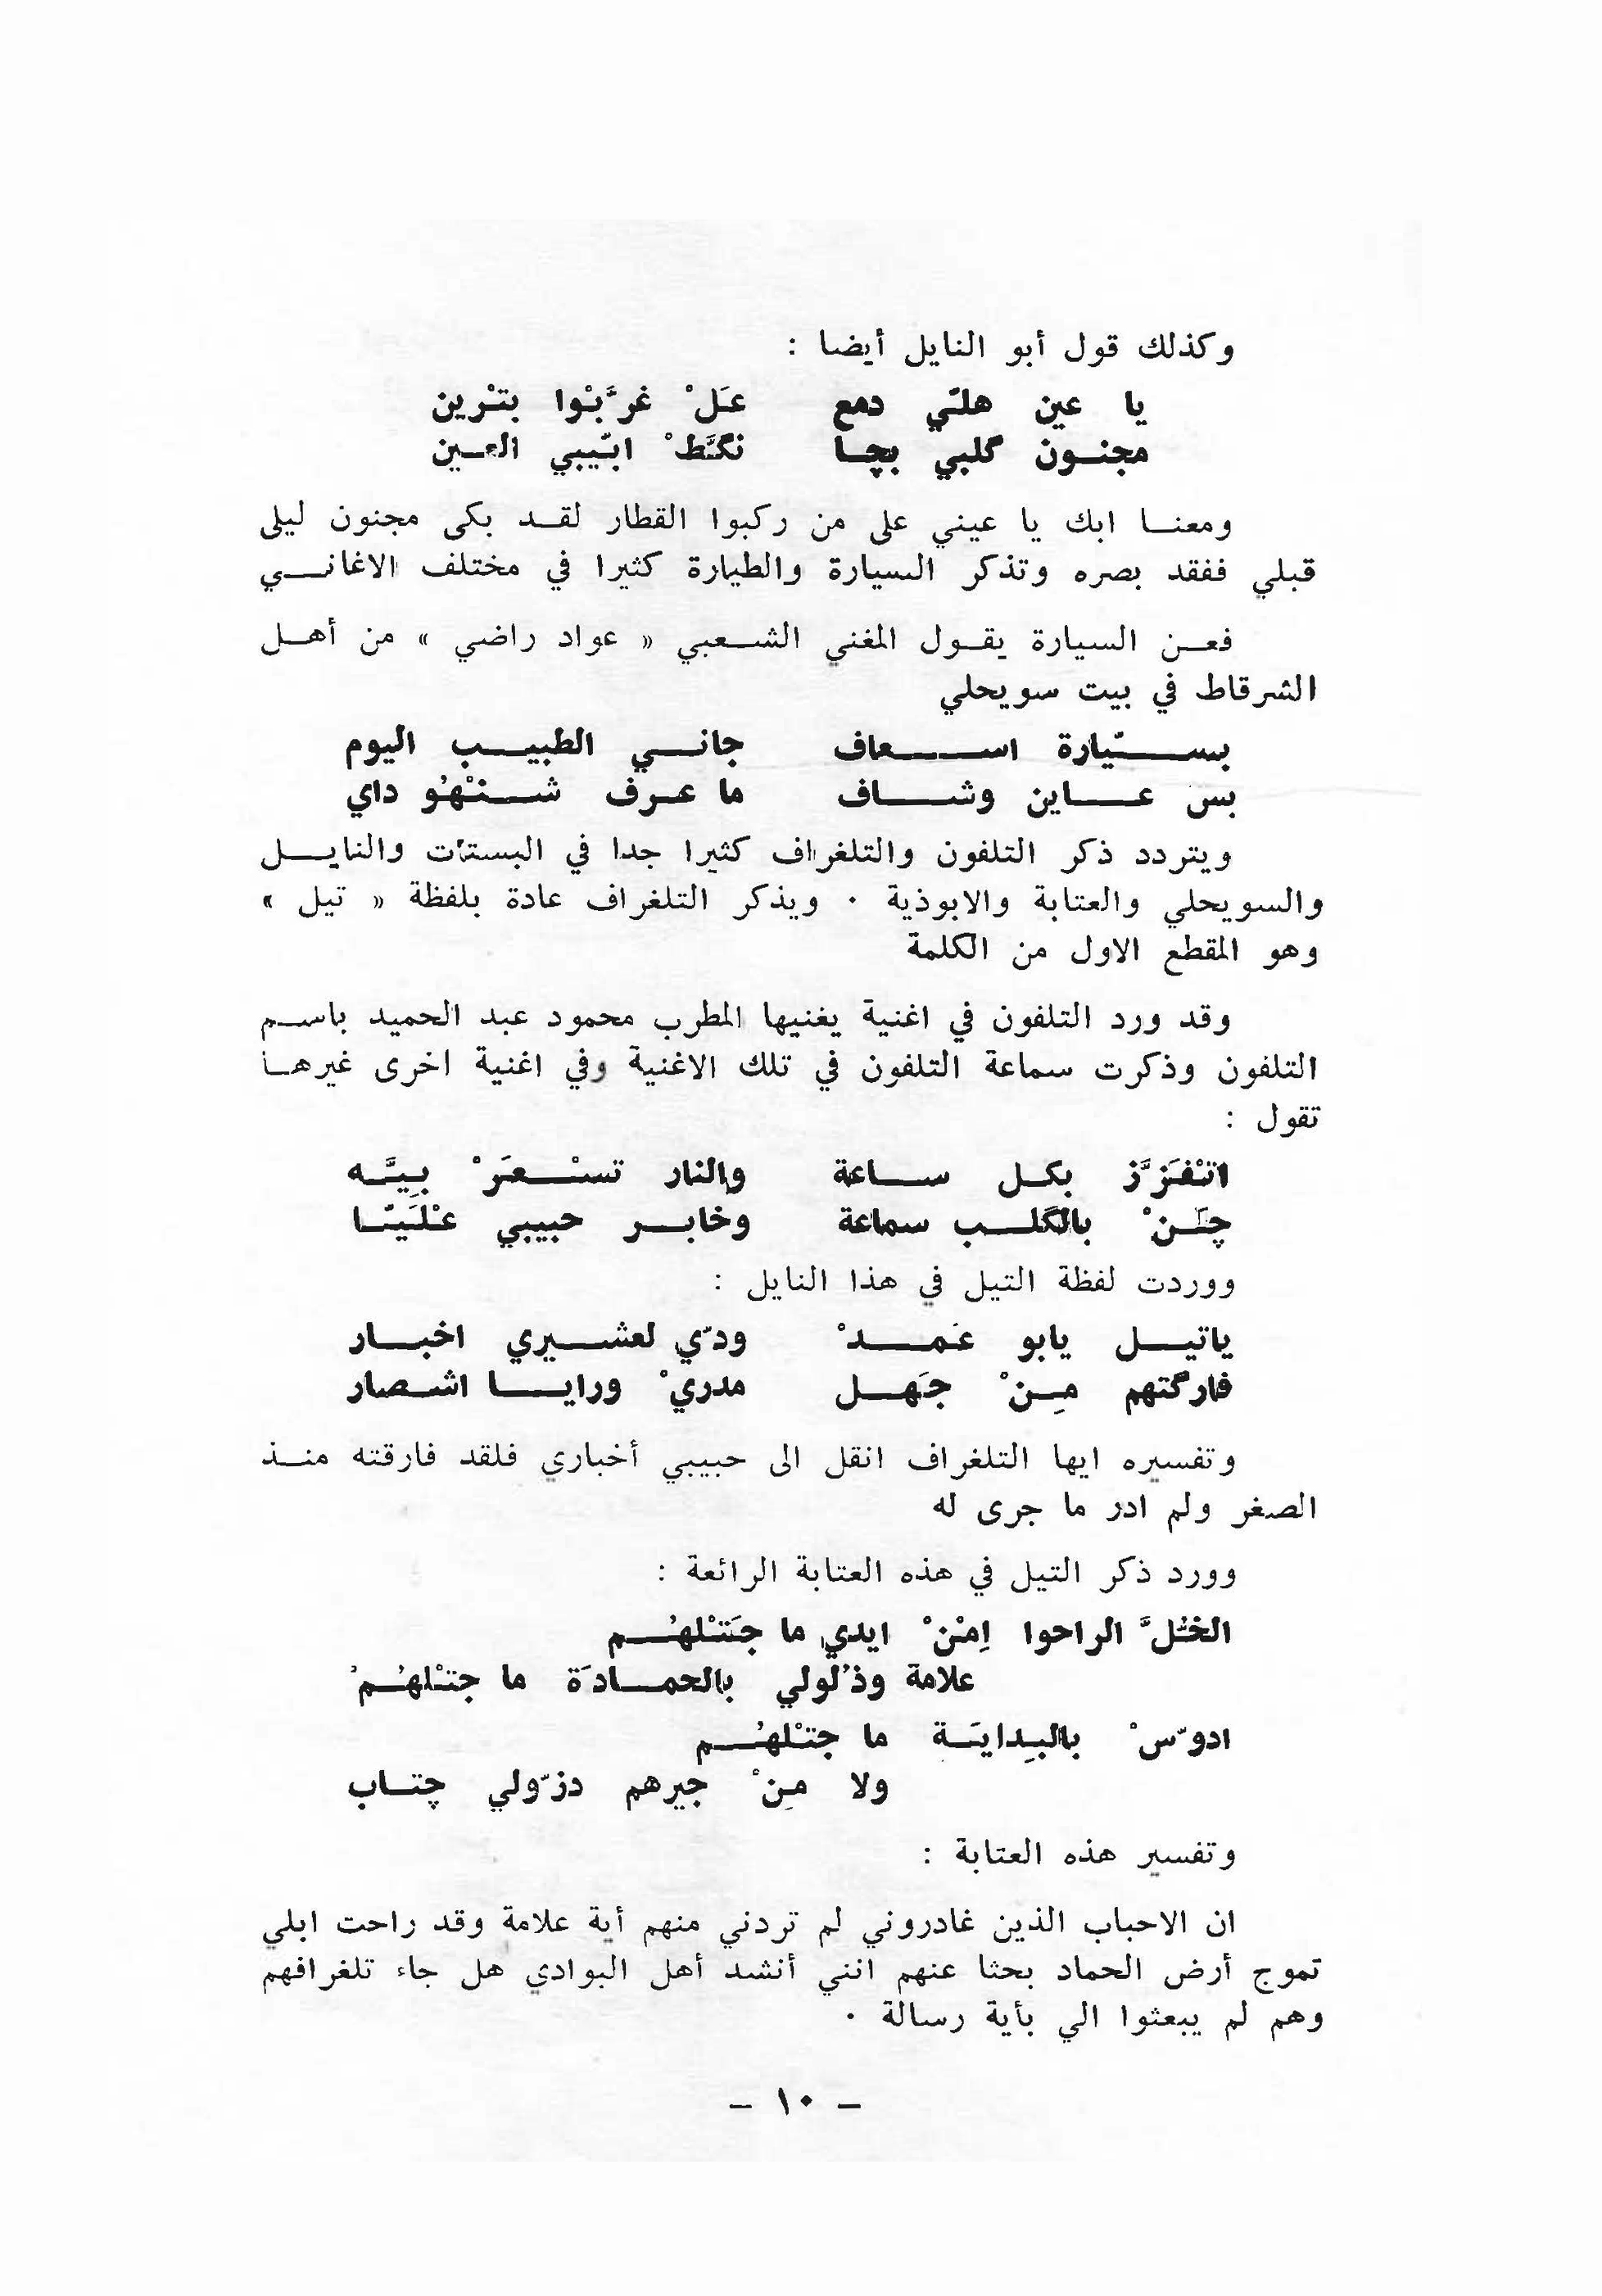 وكذلك قول أبو النايل أيضا :
يا عين هلّي دمع عَلْ غرَّبْوا بتْرين
مجنون گلبي بچا نگَّطْ ابّيبي العين
ومعنا ابك يا عيني على من ركبوا القطار لقد بكى مجنون ليلى
قبلي ففقد بصره وتذكر السيارة والطيارة كثيرا في مختلف الاغاني
فعن السيارة يقول المغني الشعبي « عواد راضي » من أهل
الشرقاط في بيت سويحلي
بسّيارة اسعاف جاني الطبيب اليوم
بس عاين وشاف ما عرف شنْهُو داي
ويتردد ذكر التلفون والتلغراف كثيرا جدا في البستات والنايل
والسويحلي والعتابة والابوذية . ويذكر التلغراف عادة بلفظة « تيل »
وهو المقطع الاول من الكلمة
وقد ورد التلفون في اغنية يغنيها المطرب محمود عبد الحميد باسم
التلفون وذكرت سماعة التلفون في تلك الاغنية وفي اغنية اخرى غيرها
تقول :
اتْفَزَّز بكل ساعة والنار تسْعَرْ بِيَّه
چَنْ بالگلب سماعة وخابر حبيبي عْلَيّا
ووردت لفظة التيل في هذا النايل :
ياتيل يابو عَمَدْ ودّي لعشيري اخبار
فارگتهم مِنْ جَهل مدريْ ورايا اشصار
وتفسيره ايها التلغراف انقل الى حبيبي أخباري فلقد فارقته منذ
الصغر ولم ادر ما جرى له
وورد ذكر التيل في هذه العتابة الرائعة :
الخُلَّ الراحوا اِمْنْ ايدي ما جَتْلهُم
علامة وذْلولي بالحمادَة ما جتْلهُمْ
ادوّسْ بالبِدايَة ما جتْلهُم
ولا مِنْ جيرهم دزّولي چتاب
وتفسير هذه العتابة :
ان الاحباب الذين غادروني لم تردني منهم أية علامة وقد راحت ابلي
تموج أرض الحماد بحثا عنهم انني أنشد أهل البوادي هل جاء تلغرافهم
وهم لم يبعثوا الي بأية رسالة .
– ١٠ –